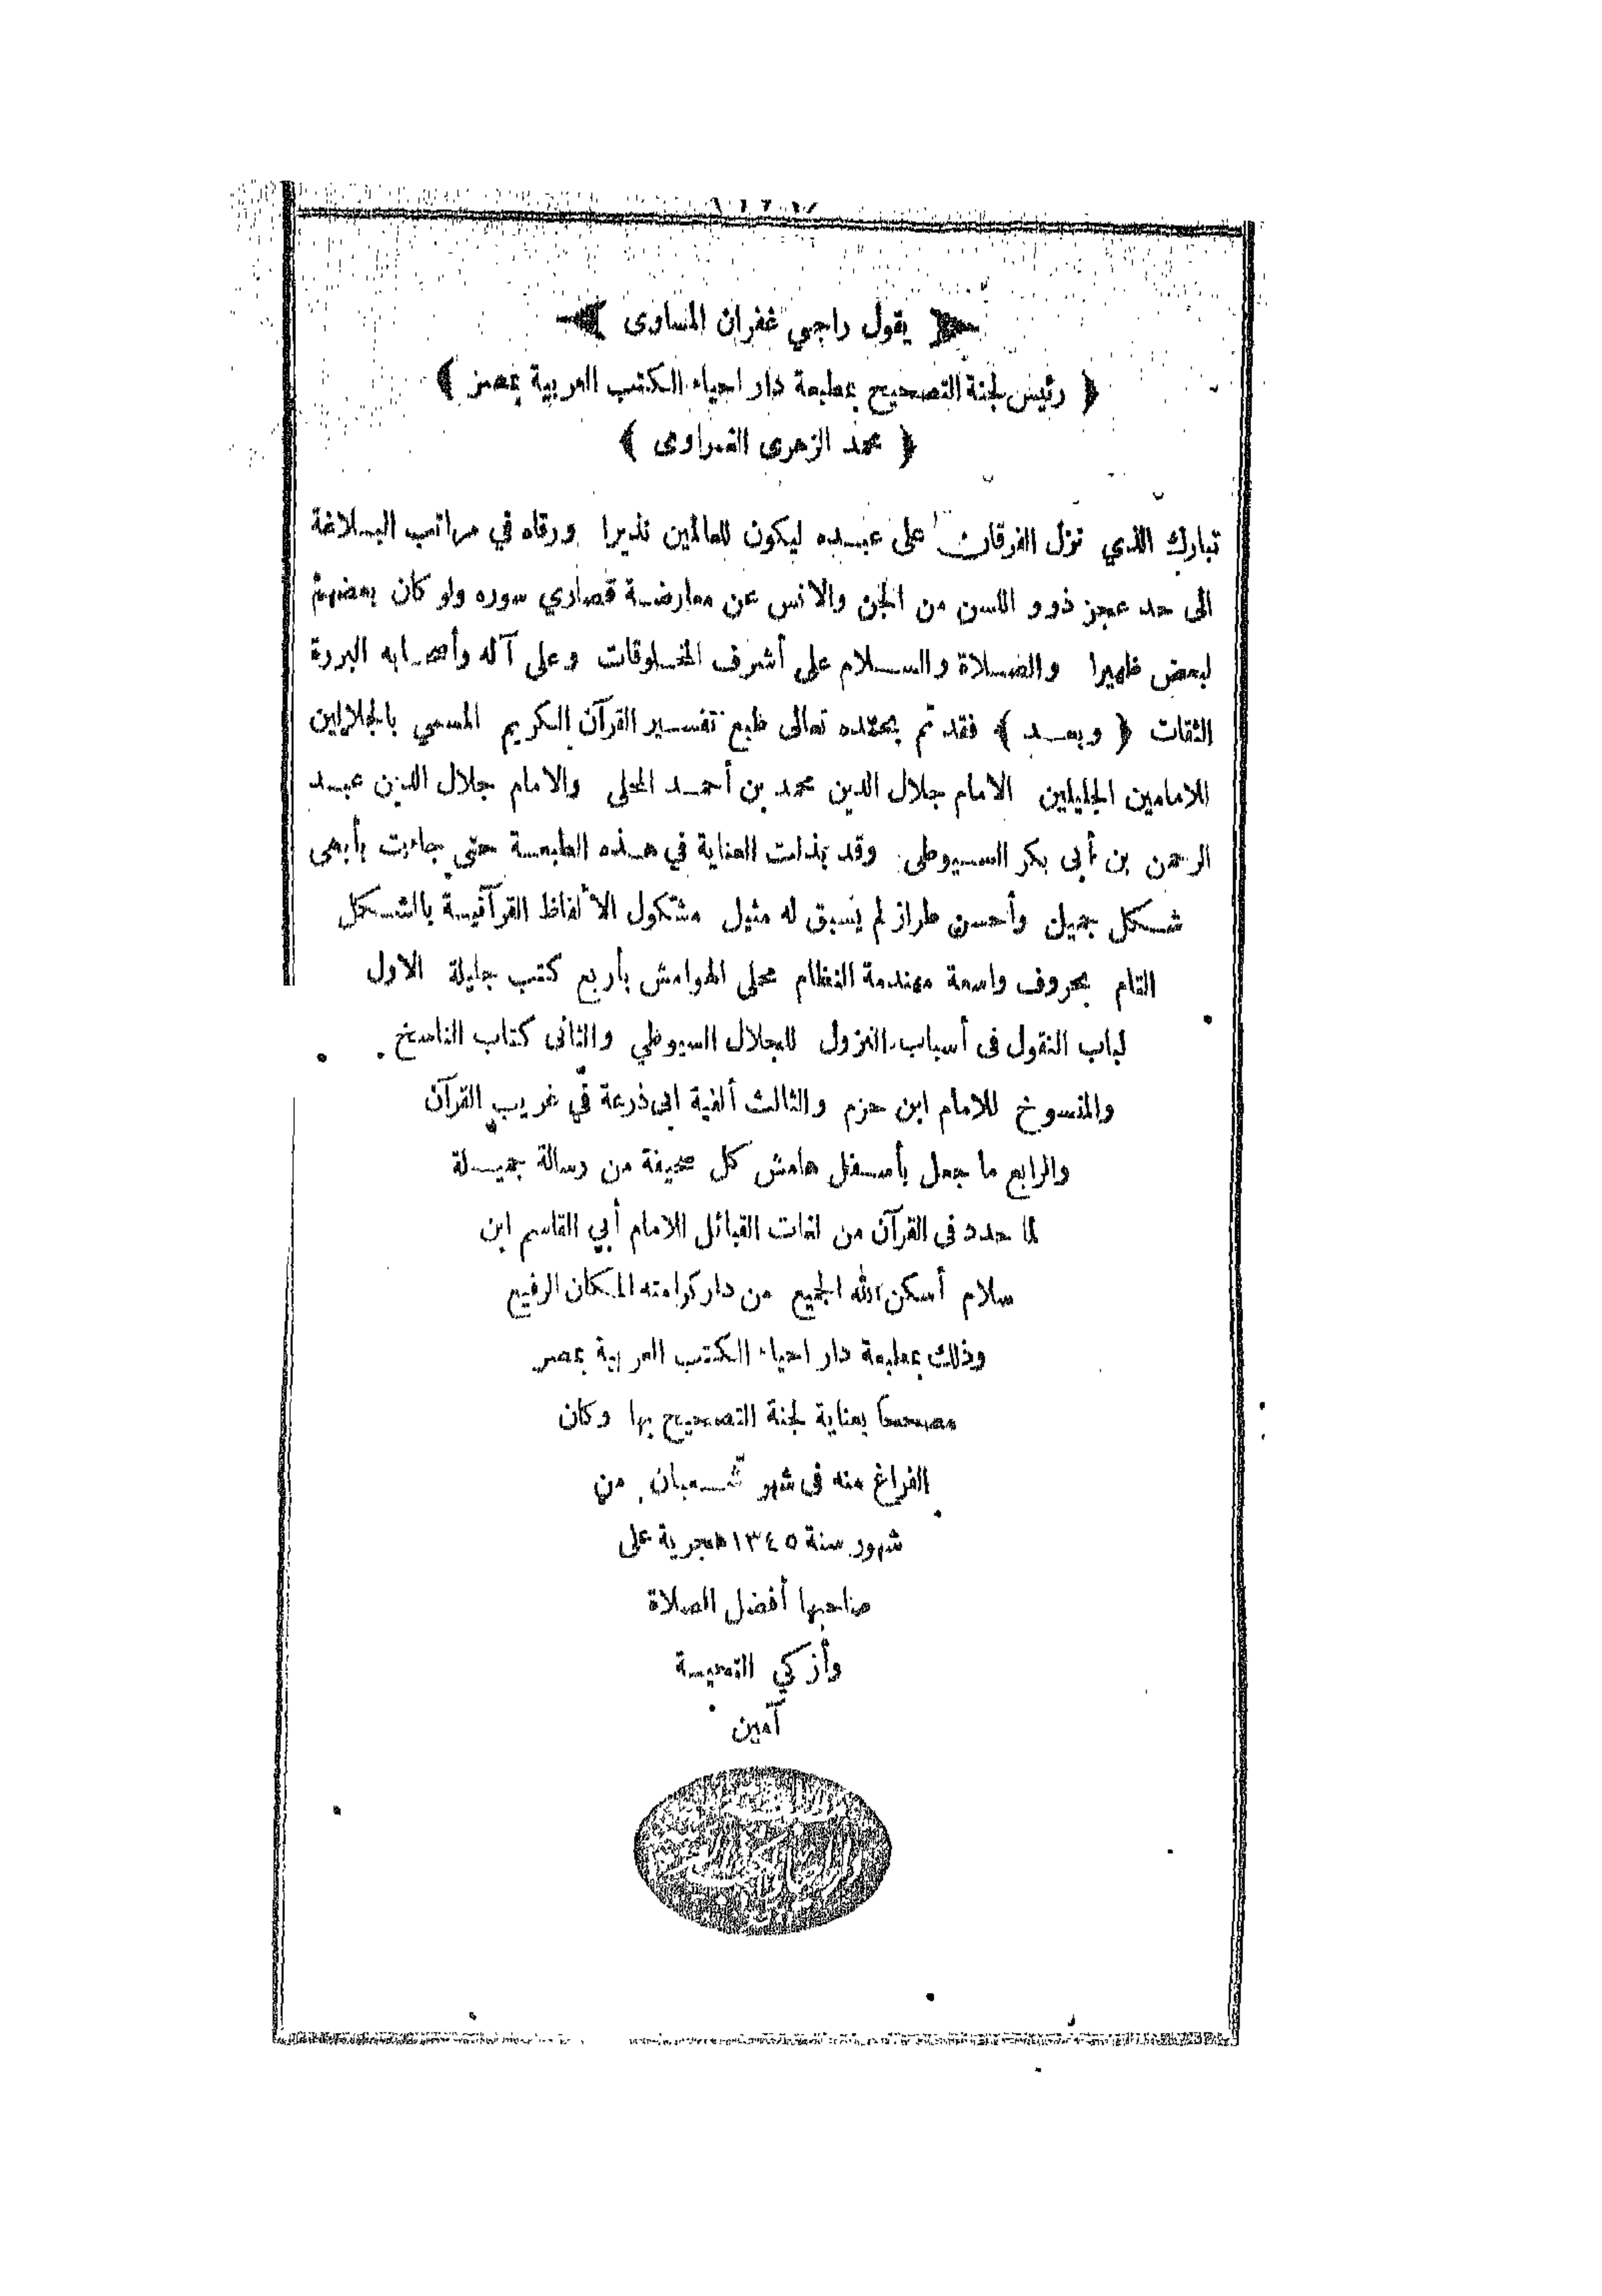 ﴿ يقول راجي غفران المساوى ﴾
﴿ رئيس لجنة التصحيح بمطبعة دار احياء الكتب العربية بمصر ﴾
﴿ محمد الزهرى الغمراوى ﴾
تبارك الذي نزل الفرقان على عبده ليكون للعالمين نذيرا ورقاه في مراتب البلاغة
الى حد عجز ذوو اللسن من الجن والانس عن معارضة قصارى سوره ولو كان بعضهم
لبعض ظهيرا والصلاة والسلام على أشرف المخلوقات وعلى آله وأصحابه البررة
الثقات ﴿ وبعد ﴾ فقد تم بحمده تعالى طبع تفسير القرآن الكريم المسمي بالجلالين
للامامين الجليلين الامام جلال الدين محمد بن أحمد المحلى والامام جلال الدين عبد
الرحمن بن أبى بكر السيوطى وقد بذلت العناية في هذه الطبعة حتى جاءت بأبهى
شكل جميل وأحسن طراز لم يسبق له مثيل مشكول الألفاظ القرآنية بالشكل
التام بحروف واسعة مهندمة النظام محلى الهوامش بأربع كتب جليلة الاول
لباب النقول فى أسباب النزول للجلال السيوطي والثانى كتاب الناسخ
والمنسوخ للامام ابن حزم والثالث ألفية ابى ذرعة في غريب القرآن
والرابع ما جعل بأسفل هامش كل صحيفة من رسالة جميلة
لما حدد فى القرآن من لغات القبائل للامام أبي القاسم ابن
سلام أسكن الله الجميع من دار كرامته المكان الرفيع
وذلك بمطبعة دار احياء الكتب العربية بمصر
مصححا بعناية لجنة التصحيح بها وكان
الفراغ منه فى شهر شعبان من
شهور سنة ١٣٤٥ هجرية على
صاحبها أفضل الصلاة
وأزكي التحية
آمين